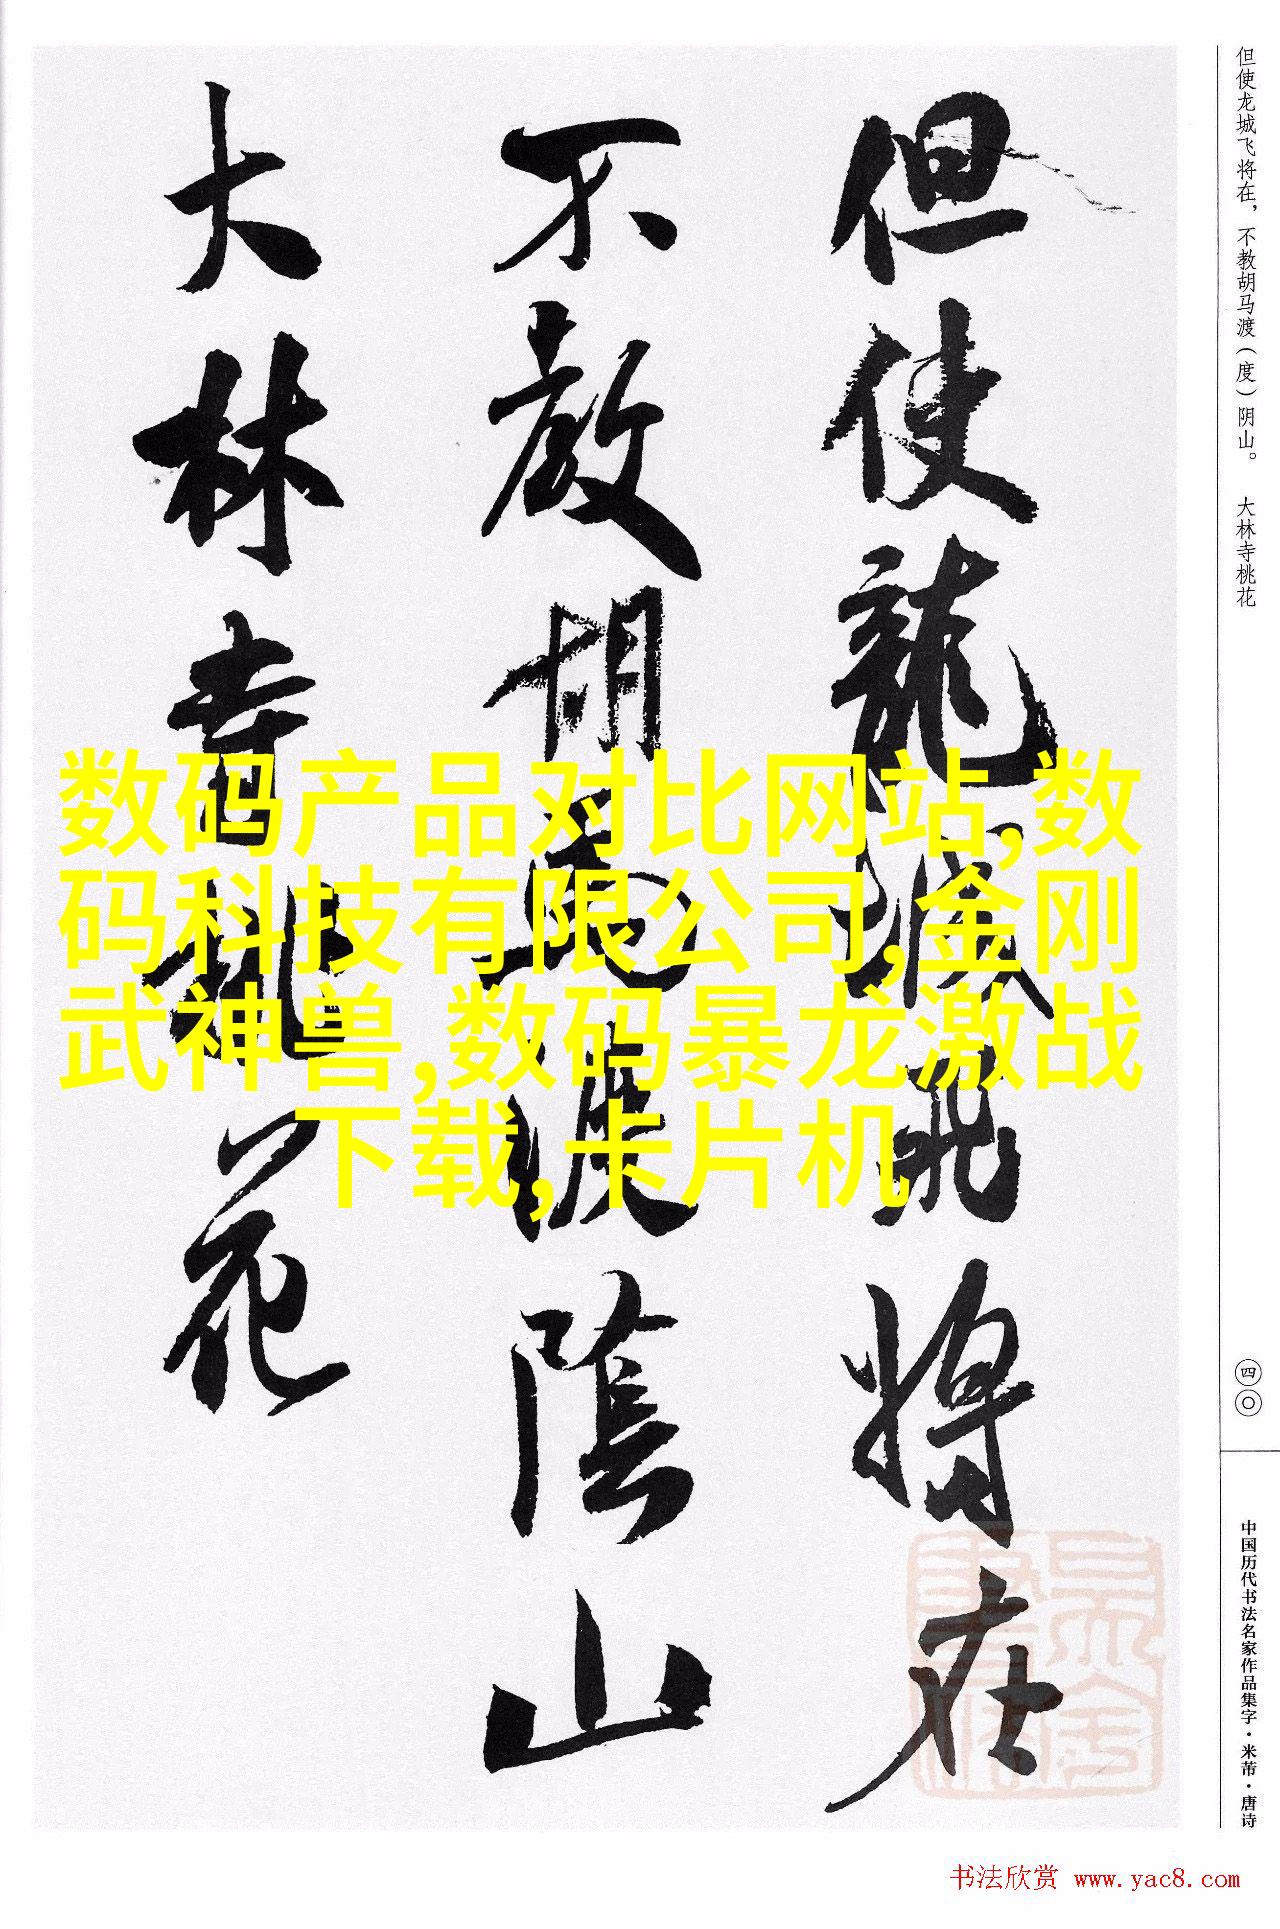 但使龍城飛將在
不教胡馬渡陰山
大林寺桃花
但使龙城飞将在，不教胡马渡（度）阴山。 大林寺桃花
四〇
中国历代书法名家作品集字·米芾·唐诗
数码产品对比网站,数
码科技有限公司,金刚
武神兽,数码暴龙激战
下载,卡片机
书法欣赏 www.yac8.com